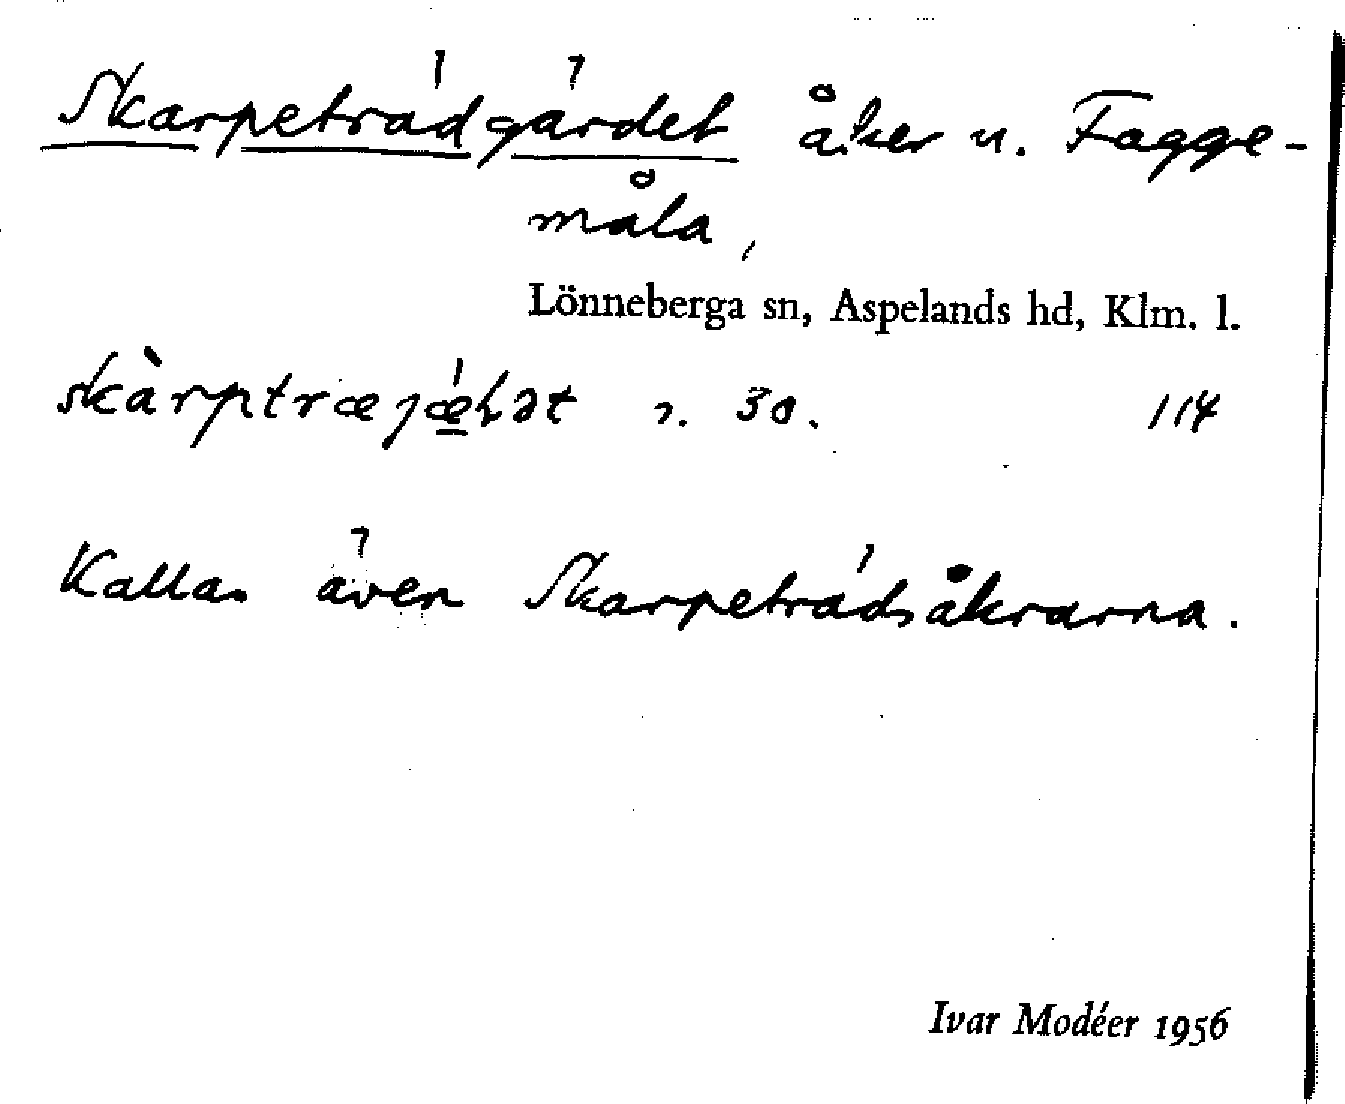 Skarpeträdgärdet åker n. Fagge-
måla,
Lönneberga sn, Aspelands hd, Klm. l.
r. 30. 114
Kallas även Skarpeträdsåkrarna.
Ivar Modéer 1956